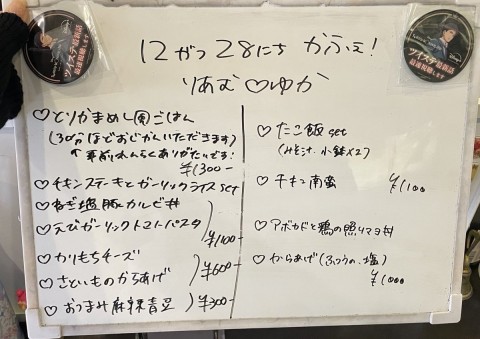 12がつ28にち かふぇ!
りあむ♡ゆか
♡とりかまめし風ごはん
(30分ほどおじかんいただきます)
↑事前れんらくありがたいです!
¥1300-
♡チキンステーキとガーリックライスset
♡ねぎ塩豚カルビ丼
♡えびガーリックトマトパスタ
¥1100-
♡かりもちチーズ
♡さといものからあげ
¥600-
♡おつまみ麻辣青豆 ¥300-
♡たこ飯set
(みそ汁、小鉢×2)
♡チキン南蛮 ¥1100
♡アボカドと鶏の照りマヨ丼
♡からあげ(ふつうの、塩)
¥1000
ツイステ最新話
最速視聴します
ツイステ最新話
最速視聴します